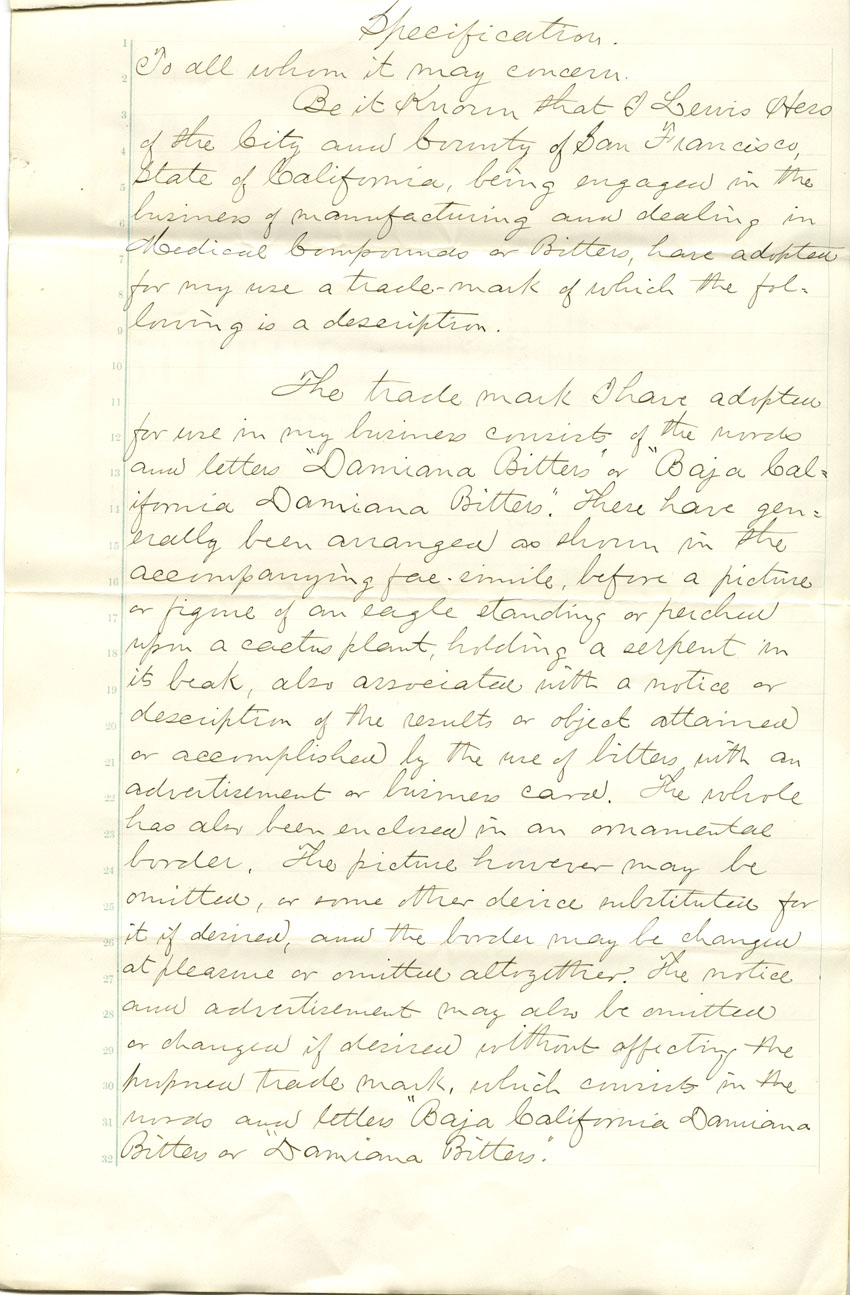 Specification.
1
To all whom it may concern.
2
Be it Known that I Lewis Hess
3
of the City and County of San Francisco,
4
State of California, being engaged in the
5
business of manufacturing and dealing in
6
Medical Compounds or Bitters, have adopted
7
for my use a trade-mark of which the fol-
8
lowing is a description.
9
10
The trade mark I have adopted
11
for use in my business consists of the words
12
and letters "Damiana Bitters" or "Baja Cal-
13
ifornia Damiana Bitters". These have gen-
14
erally been arranged as shown in the
15
accompanying fac-simile, before a picture
16
or figure of an eagle standing or perched
17
upon a cactus plant, holding a serpent in
18
its beak, also associated with a notice or
19
description of the results or object attained
20
or accomplished by the use of bitters, with an
21
advertisement or business card. The whole
22
has also been enclosed in an ornamental
23
border. The picture however may be
24
omitted, or some other device substituted for
25
it if desired, and the border may be changed
26
at pleasure or omitted altogether. The notice
27
and advertisement may also be omitted
28
or changed if desired without affecting the
29
proposed trade mark, which consists in the
30
words and letters "Baja California Damiana
31
Bitters or "Damiana Bitters".
32